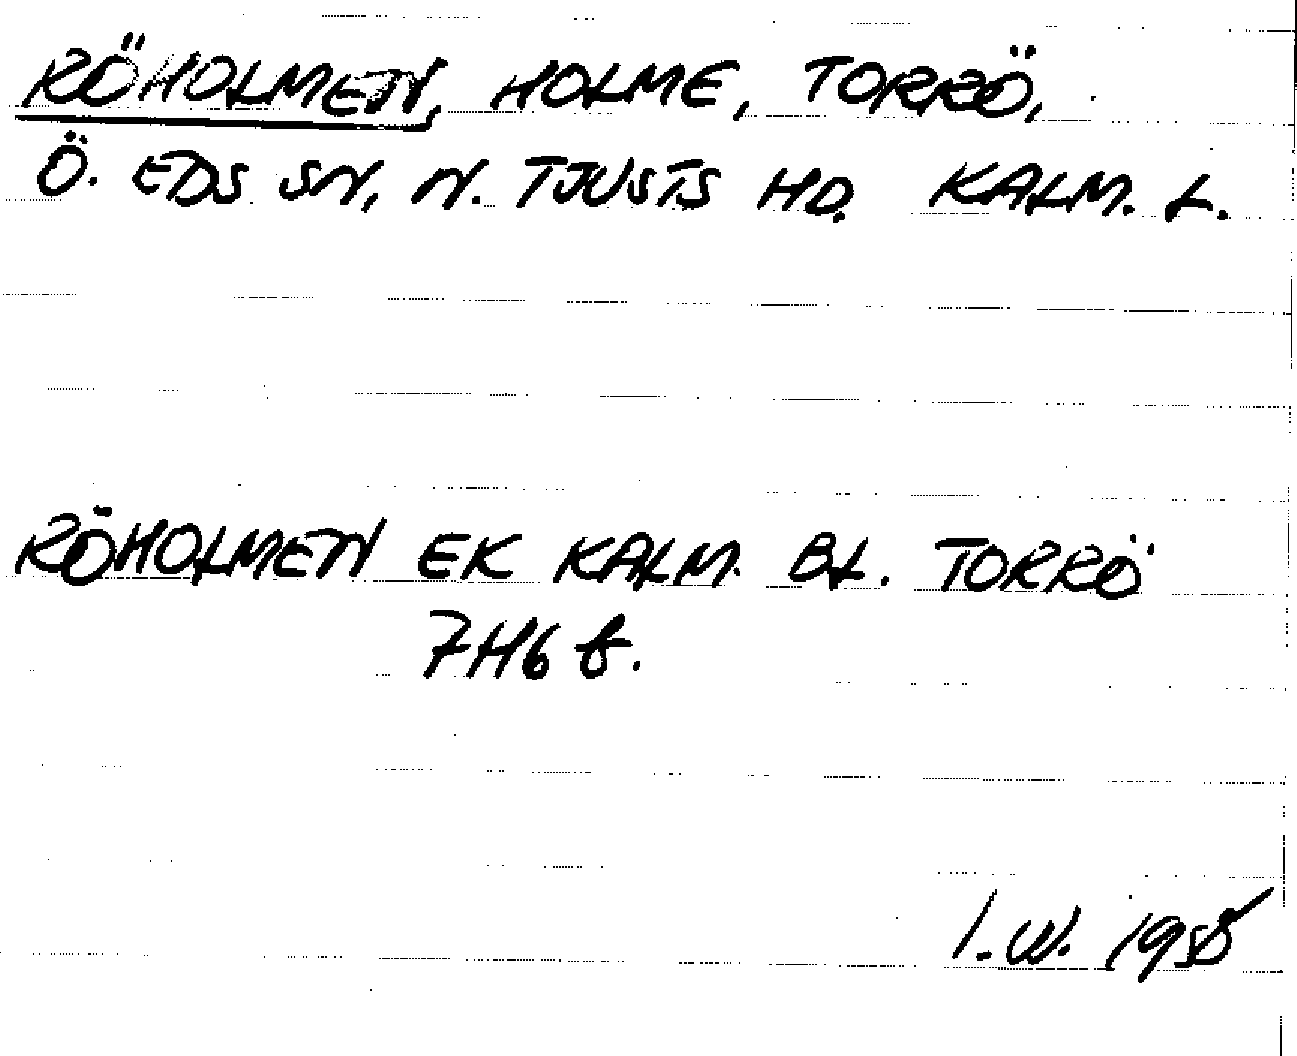 RÖHOLMEN, HOLME, TORRÖ,
Ö. EDS SN, N. TJUSTS HD. KALM. L.
RÖHOLMEN EK KALM. BL. TORRÖ
7H6 f.
I. W. 1958